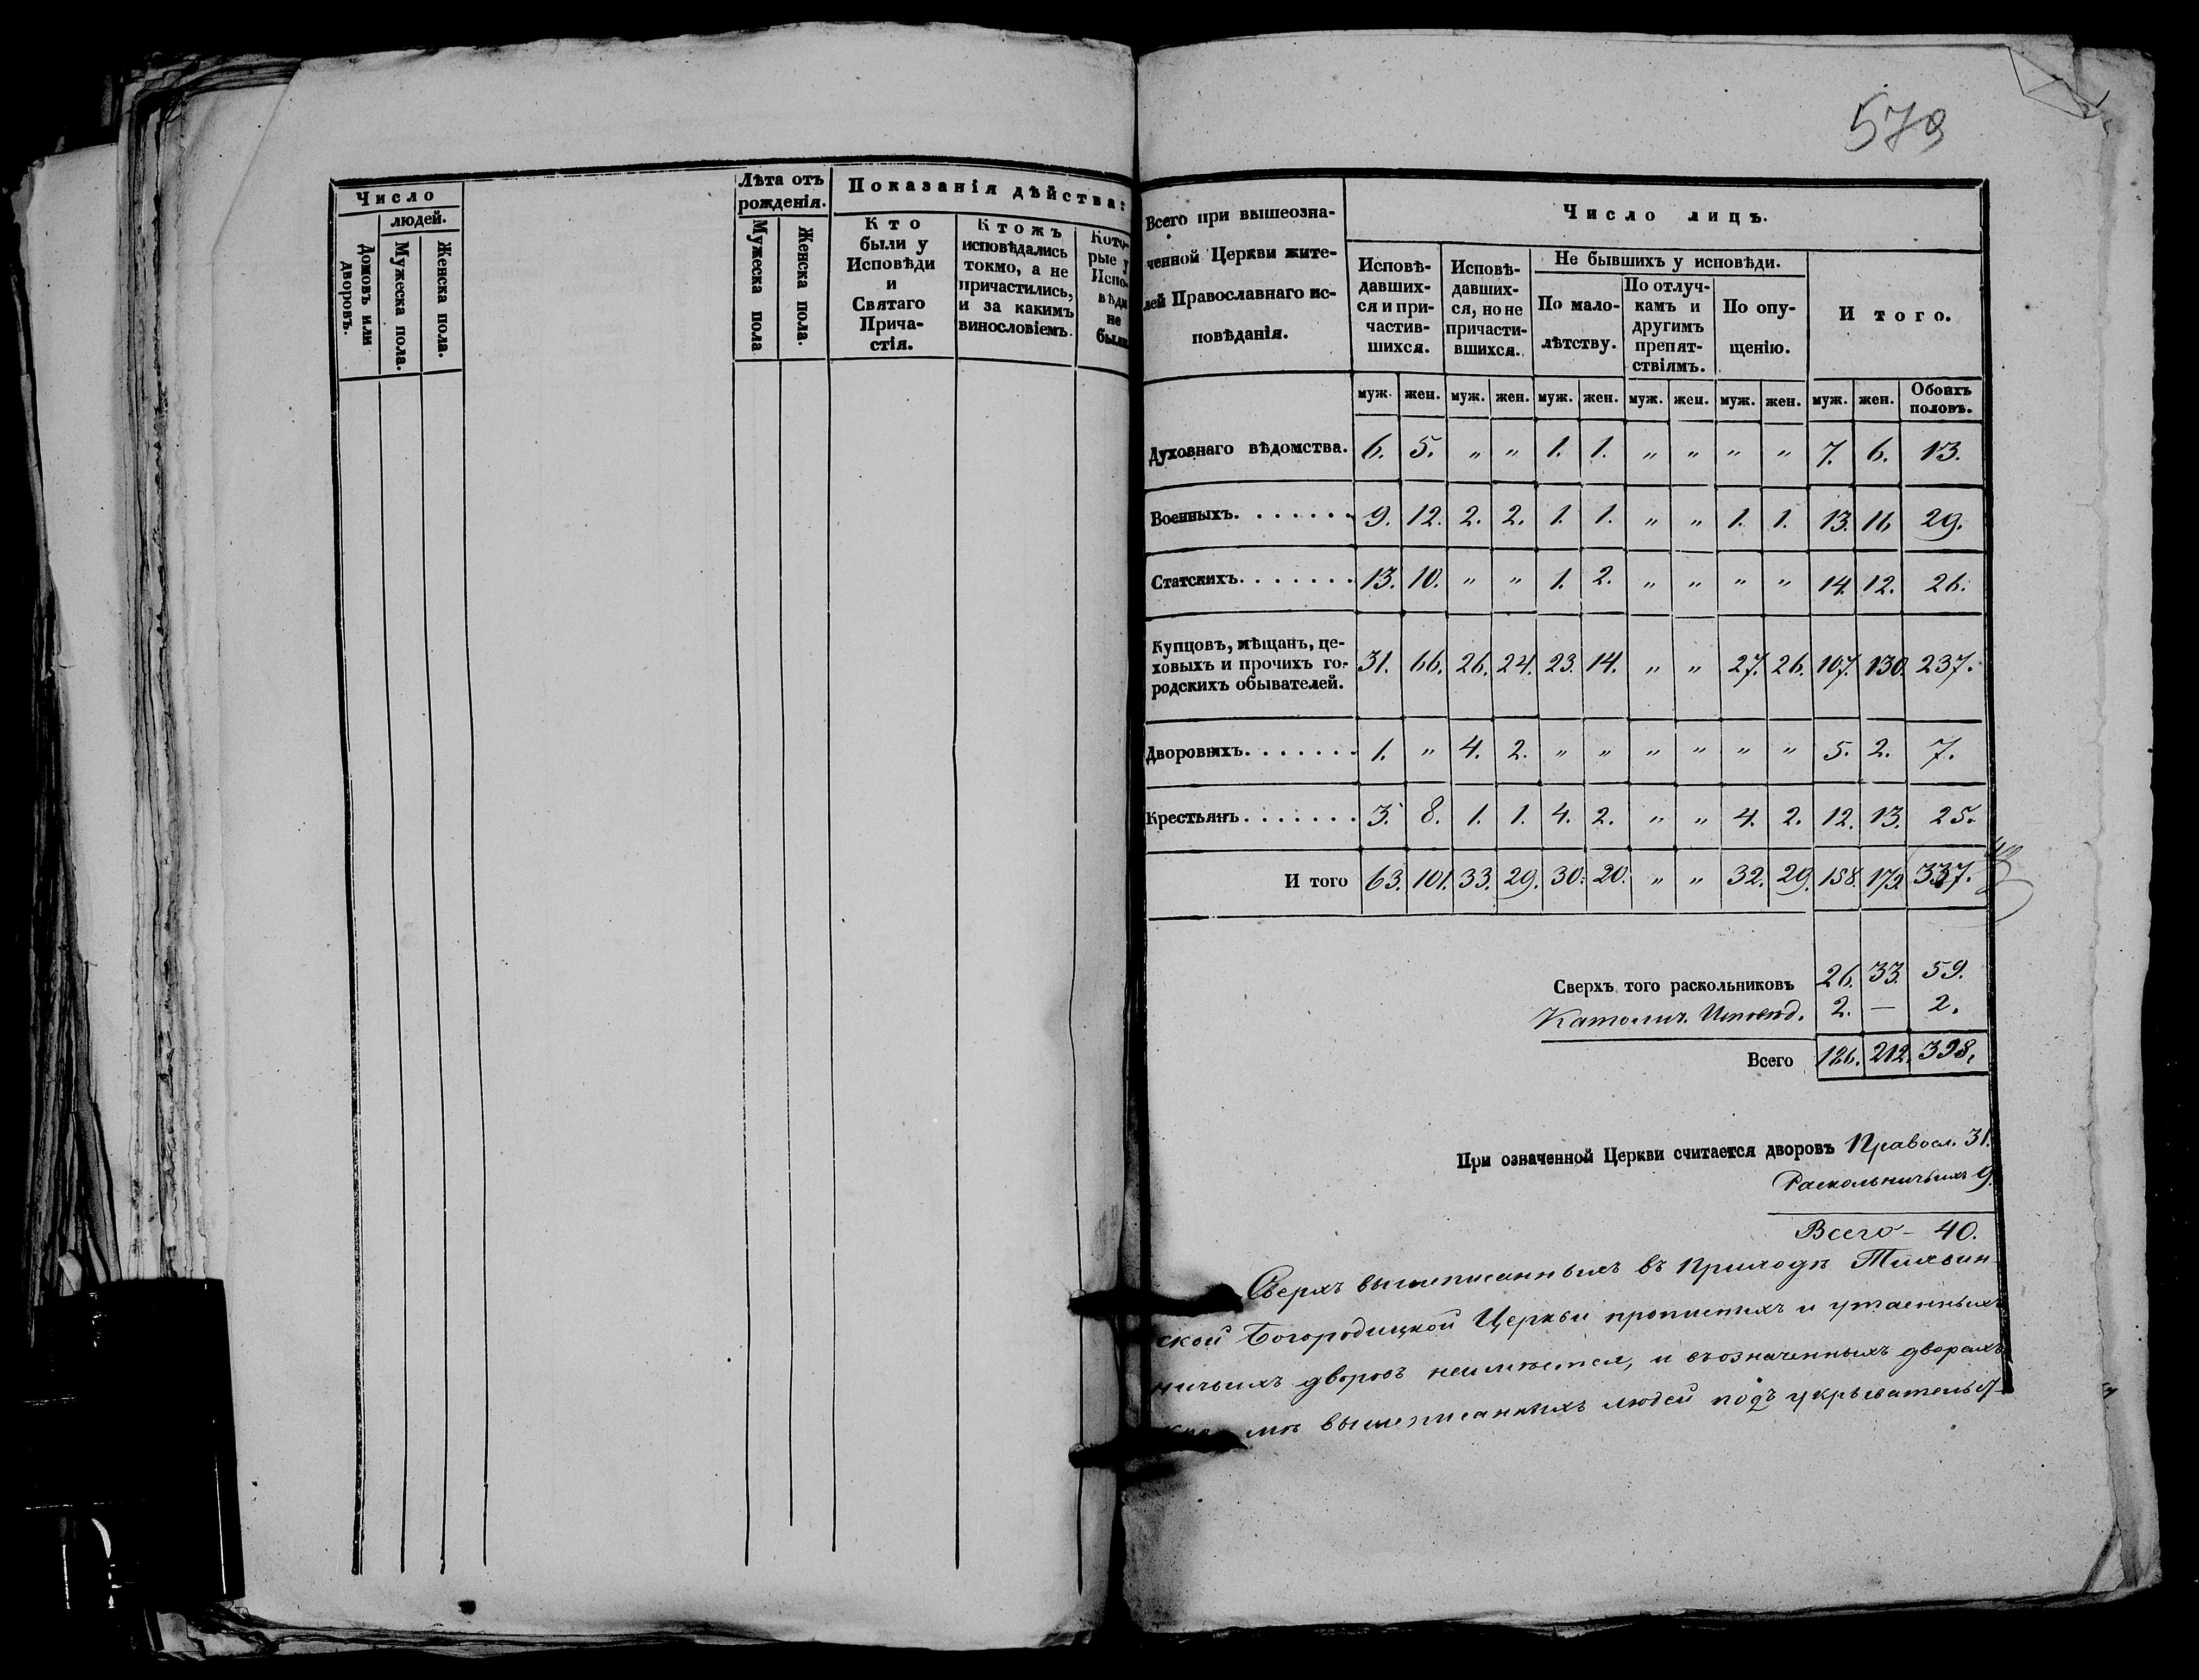 578
Число
людей.
Домовъ или дворовъ.
Мужеска пола.
Женска пола.
Лѣта отъ рожденія.
Мужеска пола
Женска пола.
Показанія дѣйства:
Кто
были у
Исповѣди
и
Святаго
Прича-
стія.
Ктожъ
исповѣдались
токмо, а не
причастились,
и за какимъ
винословіемъ.
Кото-
рые у
Испо-
вѣди
не
были
Всего при вышеозна-
ченной Церкви жите-
лей Православнаго ис-
повѣданія.
Число лицъ.
Исповѣ-
давших-
ся и при-
частив-
шихся.
Исповѣ-
давших-
ся, но не
причасти-
вшихся.
Не бывшихъ у исповѣди.
По мало-
лѣтству.
По отлуч-
камъ и
другимъ
препят-
ствіямъ.
По опу-
щенію.
Итого.
муж. жен. муж. жен. муж. жен. муж. жен. муж. жен. муж. жен. Обоихъ половъ.
Духовнаго вѣдомства. 6. 5. " " 1. 1. " " " " 7. 6. 13.
Военныхъ. . . . . . . 9. 12. 2. 2. 1. 1. " " 1. 1. 13. 16 29.
Статскихъ. . . . . . . 13. 10. " " 1. 2. " " " " 14. 12. 26.
Купцовъ, мѣщанъ, це-
ховыхъ и прочихъ го-
родскихъ обывателей.
31. 66. 26. 24. 23. 14. " " 27. 26. 107. 130. 237.
Дворовыхъ. . . . . . . 1. " 4. 2. " " " " " " 5. 2. 7.
Крестьянъ. . . . . . . 3. 8. 1. 1. 4. 2. " " 4. 2. 12. 13. 25.
И того 63. 101. 33. 29. 30. 20. " " 32. 29. 158. 179. 337.
Сверхъ того раскольниковъ 26. 33. 59.
Католич. Исповѣд. 2. — 2.
Всего 186. 212. 398.
При означенной Церкви считается дворовъ Правосл. 31.
Раскольничьихъ 9.
Всего - 40.
Сверхъ вышеписанныхъ въ Приходѣ Тихвин-
ской Богородицкой Церкви прописныхъ и утаенныхъ
ничьихъ дворовъ неимѣется, и въ означенныхъ дворахъ
мѣ вышеписанныхъ людей подъ укрывательст-